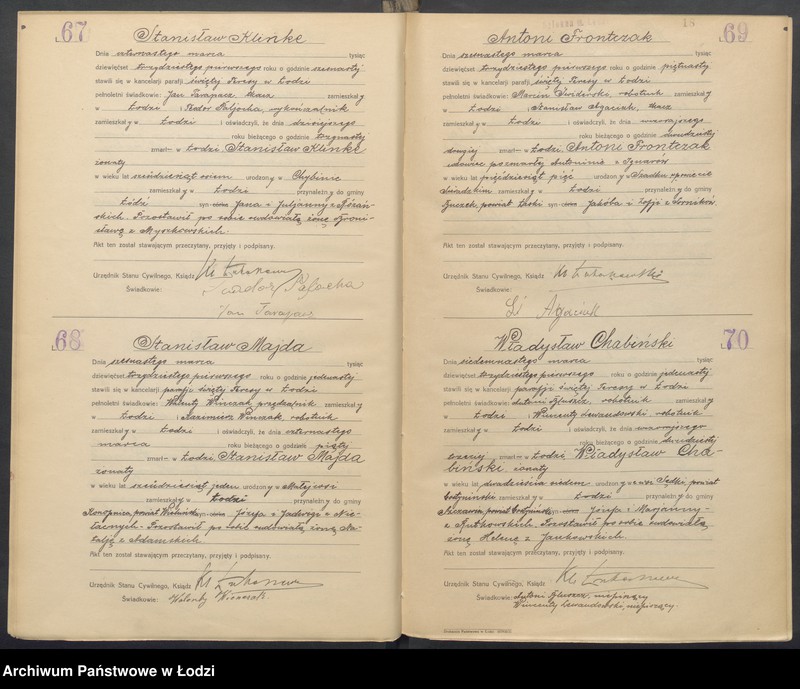 67
Stanisław Klinke
Dnia czternastego marca tysiąc
dziewięćset trzydziestego pierwszego roku o godzinie szesnastej
stawili się w kancelarji parafji świętej Teresy w Łodzi
pełnoletni świadkowie: Jan Tarapacz, tkacz zamieszkały
w Łodzi i Teodor Paljocha, wykończalnik
zamieszkały w Łodzi i oświadczyli, że dnia dzisiejszego
roku bieżącego o godzinie trzynastej
zmarł w Łodzi Stanisław Klinke
żonaty
w wieku lat sześćdziesiąt osiem urodzony w Chybinie
zamieszkały w Łodzi przynależny do gminy
Łódź syn Jana i Juljanny z Różań-
skich. Pozostawił po sobie owdowiałą żonę Broni-
sławę z Myszkowskich.
Akt ten został stawającym przeczytany, przyjęty i podpisany.
Urzędnik Stanu Cywilnego, Ksiądz
Świadkowie:
Jan Tarapacz
68
Stanisław Majda
Dnia szesnastego marca tysiąc
dziewięćset trzydziestego pierwszego roku o godzinie jedenastej
stawili się w kancelarji parafji świętej Teresy w Łodzi
pełnoletni świadkowie: Walenty Winczak, przędzalnik zamieszkały
w Łodzi i Kazimierz Winczak, robotnik
zamieszkały w Łodzi i oświadczyli, że dnia czternastego
marca roku bieżącego o godzinie piątej
zmarł w Łodzi, Stanisław Majda
żonaty
w wieku lat sześćdziesiąt jeden urodzony w
zamieszkały w Łodzi przynależny do gminy
Konopnica, powiat Wieluński, syn Józefa i Jadwigi z Nie-
łacnych. Pozostawił po sobie owdowiałą żonę Na-
talję z Adamskich.
Akt ten został stawającym przeczytany, przyjęty i podpisany.
Urzędnik Stanu Cywilnego, Ksiądz
Świadkowie: Walenty
69
Antoni Frontczak
Dnia szesnastego marca tysiąc
dziewięćset trzydziestego pierwszego roku o godzinie piętnastej
stawili się w kancelarji parafji świętej Teresy w Łodzi
pełnoletni świadkowie: Marcin robotnik zamieszkały
w Łodzi i Stanisław tkacz
zamieszkały w Łodzi i oświadczyli, że dnia wczorajszego
roku bieżącego o godzinie dwudziestej
drugiej zmarł w Łodzi Antoni Frontczak
wdowiec po zmarłej Antoninie z
w wieku lat pięćdziesiąt pięć urodzony w
zamieszkały w Łodzi przynależny do gminy
Buczek, powiat Łaski syn Jakóba i Zofji z
Akt ten został stawającym przeczytany, przyjęty i podpisany.
Urzędnik Stanu Cywilnego, Ksiądz
Świadkowie:
70
Władysław Chabiński
Dnia siedemnastego marca tysiąc
dziewięćset trzydziestego pierwszego roku o godzinie jedenastej
stawili się w kancelarji parafji świętej Teresy w Łodzi
pełnoletni świadkowie: Antoni robotnik zamieszkały
w Łodzi i Wincenty Lewandowski, robotnik
zamieszkały w Łodzi i oświadczyli, że dnia wczorajszego
roku bieżącego o godzinie dwudziestej
trzeciej zmarł w Łodzi, Władysław Cha-
biński, żonaty
w wieku lat dwadzieścia siedem urodzony we wsi Sędki, powiat
Gostyniński zamieszkały w Łodzi przynależny do gminy
Szczawin, powiat Gostyniński syn Józefa i Marjanny
z Rutkowskich. Pozostawił po sobie owdowiałą
żonę Helenę z Jankowskich.
Akt ten został stawającym przeczytany, przyjęty i podpisany.
Urzędnik Stanu Cywilnego, Ksiądz
Świadkowie: Antoni niepiszący
Wincenty Lewandowski, niepiszący.
Archiwum Państwowe w Łodzi